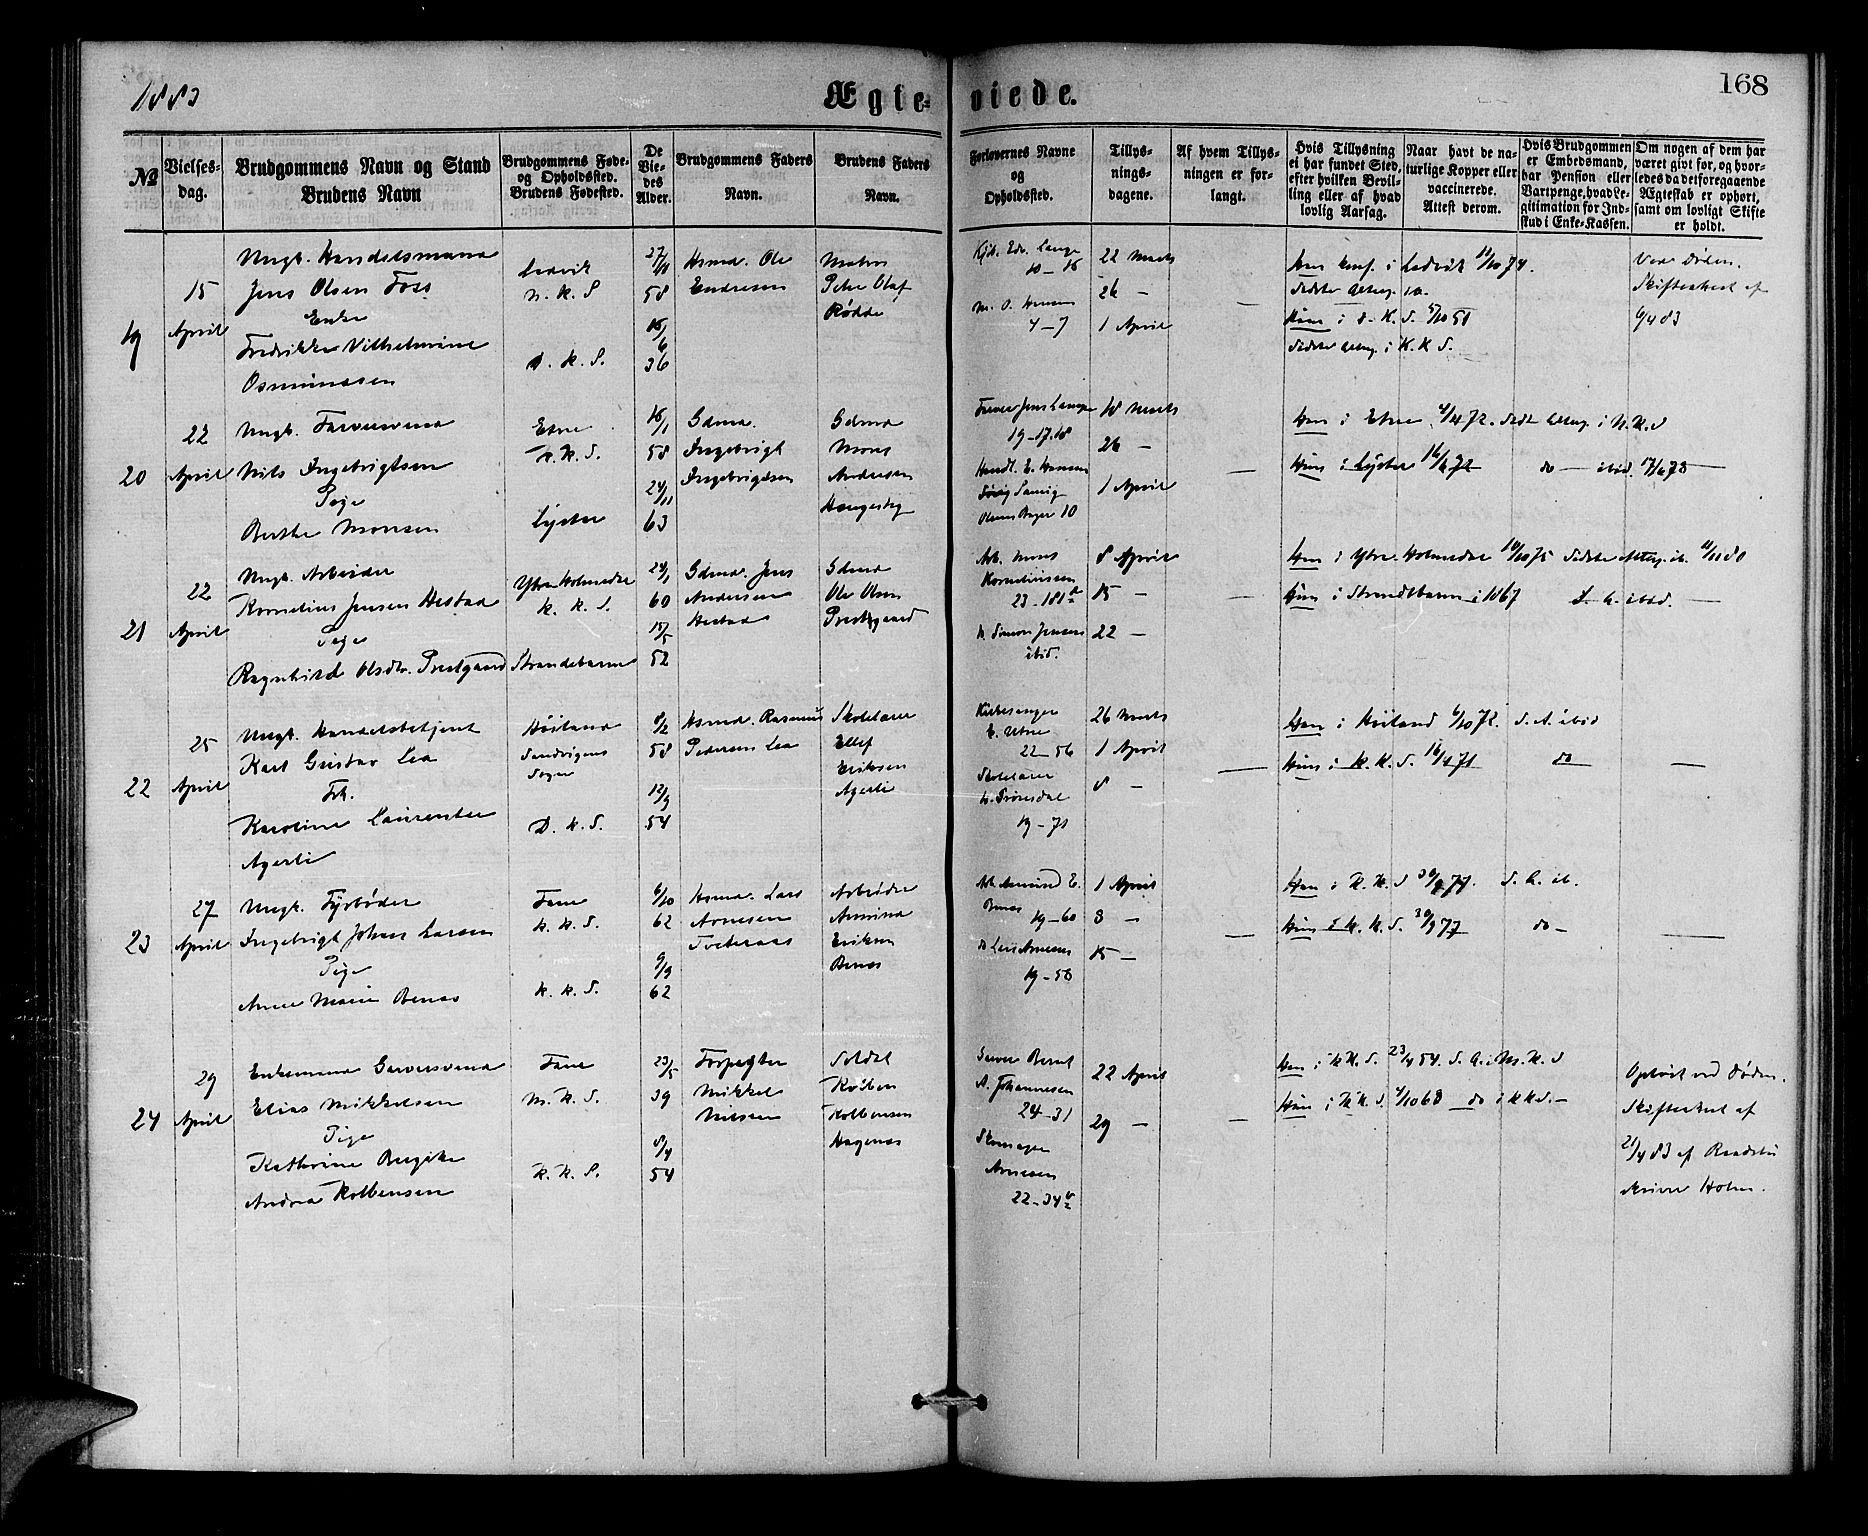 1883
Ægte-
viede.
168
№
Vielses-
dag.
Brudgommens Navn og Stand
Brudens Navn
Brudgommens Føde-
og Opholdssted.
Brudens Fødested.
De
Vie-
des
Alder.
Brudgommens Faders
Navn.
Brudens Faders
Navn.
Forlovernes Navne
og
Opholdssted.
Tillys-
nings-
dagene.
Af hvem Tillys-
ningen er for-
langt.
Hvis Tillysning
ei har fundet Sted,
efter hvilken Bevil-
ling eller af hvad
lovlig Aarsag.
Naar havt de na-
turlige Kopper eller
vaccinerede.
Attest derom.
Hvis Brudgommen
er Embedsmand,
har Pension eller
Vartpenge, hvad Le-
gitimation for Ind-
skud i Enke-Kassen.
Om nogen af dem har
været givt for, og hvor-
ledes da detforegaaende
Ægteskab er ophørt,
samt om lovligt Skifte
er holdt.
19
15
April
Ungk. Handelsmand
Jens Olsen Foss
Enke
Fredrikke Vilhelmine
Osmundsen
Ladvik
N. K. S
D. K. S.
27/11
58
15/6
36
Hsmd. Ole
Endresen
Matros
Peter Olaf
Rødde
Kjbd. Edv. Lange
10-16
4-7
22 Marts
26 -
1 April
-
Han konf. i Ladvik 11/10 74.
sidste Alterg. do.
Hun i D. K. S. 5/10 51
sidste Alterg. i K. K. S.
Ved Døden.
Skifteattest af
6/4 83
20
22
April
Ungk. Farversvend
Nils Ingebrigtsen
Pige
Berthe Monsen
Etne
K. K. S.
Lyster
16/1
58
24/11
63
Gdmd.
Ingebrigt
Ingebrigtsen
Gdmd
Mons
Andersen
Haugestig
Farver Jens Lampe
19-17.18
Handl. E. Hansen
10
18 Marts
26 -
1 April
-
Han i Etne 4/4 72. sidst Alterg. i N. K. S
Hun i Lyster 16/6 72 do - ibid. 17/6 73 -
21
22
April
Ungk. Arbeider
Kornelius Jensen Hestad
Pige
Ragnhild Olsdtr. Prestgaard
Ytre Holmedal
K. K. S.
Strandebarm
24/1
60
15/5
52
Gdmd. Jens
Andersen
Hestad
Gdmd
Ole Olsen
Prestegaard
Arb. Mons
Korneliussen
23-181 b
D. Simon Jensen
ibid.
8 April
15 -
22 -
-
Han i Ytre Holmedal 10/10 75 sidste Alterg. ib. 11/11 80
Hun i Strandebarm i 1867 S. A. ibid. -
22
25
April
Ungk. Handelsbetjent
Karl Gustav Lea
Frk.
Karoline Laurentze
Agerlie
Høiland
Sandvigens
Sogn
D. K. S.
8/2
58
12/9
54
Hsmd. Rasmus
Pedersen Lea
Skolelærer
Ellef
Eriksen
Agerlie
Kirkesanger
E. Utne
22-56
Skolelærer
19-71
26 Marts
1 April
8 -
-
Han i Høiland 6/10 72. S. A. ibid
Hun i K. K. S. 16/4 71 do -
23
27
April
Ungk. Fyrbøder
Ingebrigt Johan Larsen
Pige
Anne Marie Benæs
Fane
K. K. S.
K. K. S.
6/10
62
9/9
62
Hsmd. Lars
Arnesen
Tveteraas
Arbeider
Amund
Eriksen
Benæs
Arb. Amund E.
Benæs
19-60
D. Lars Arnesen
19-58
1 April
8 -
15 -
-
Han i K. K. S 30/9 77. S. A. ib.
Hun i K. K. S. 30/9 77 do - -
24
29
April
Enkemand Garversvend
Elias Mikkelsen
Pige
Kathrine Birgitte
Andrea Kolbensen
Fane
M. K. S.
K. K. S.
23/5
39
8/4
54
Forpagter
Mikkel
Nilssen
Soldat
Kolben
Kolbensen
Hagenæs
Garver Bernt
A. Johannesen
24-31
Skomager
Arnesen
22-34 b
22 April
29 -
-
Han i K K. S. 23/4 54. S. A. i M. K. S
Hun i K K. S. 4/10 68 do i K K S. -
Opløst ved Døden.
Skifteattest af
21/4 83 af Raadstu
skriver Holm.